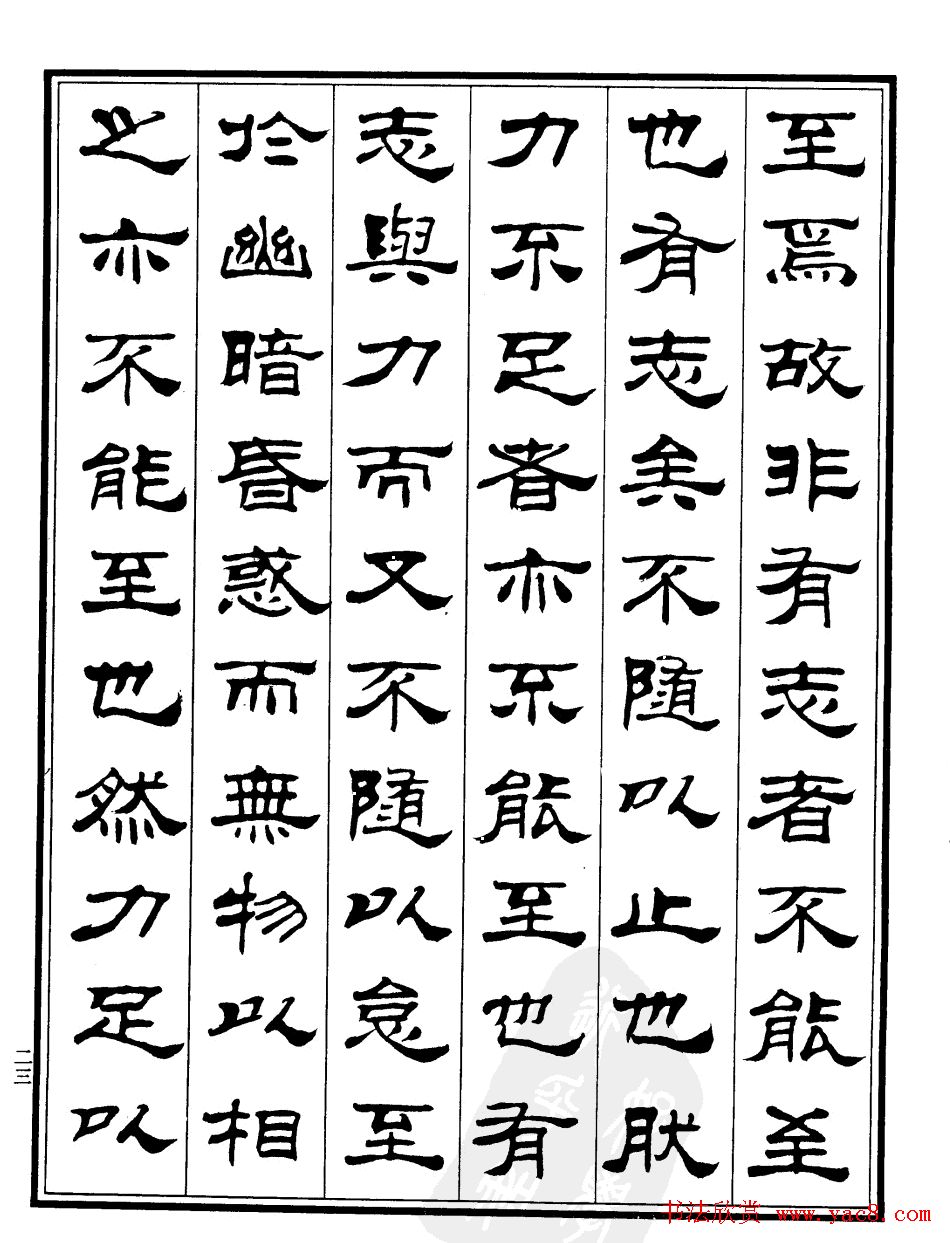 至焉故非有志者不能至
也有志矣不隨以止也肰
力不足者亦不能至也有
志與力而又不隨以怠至
於幽暗昏惑而無物以相
之亦不能至也然力足以
二三
书法欣赏 www.yac8.com